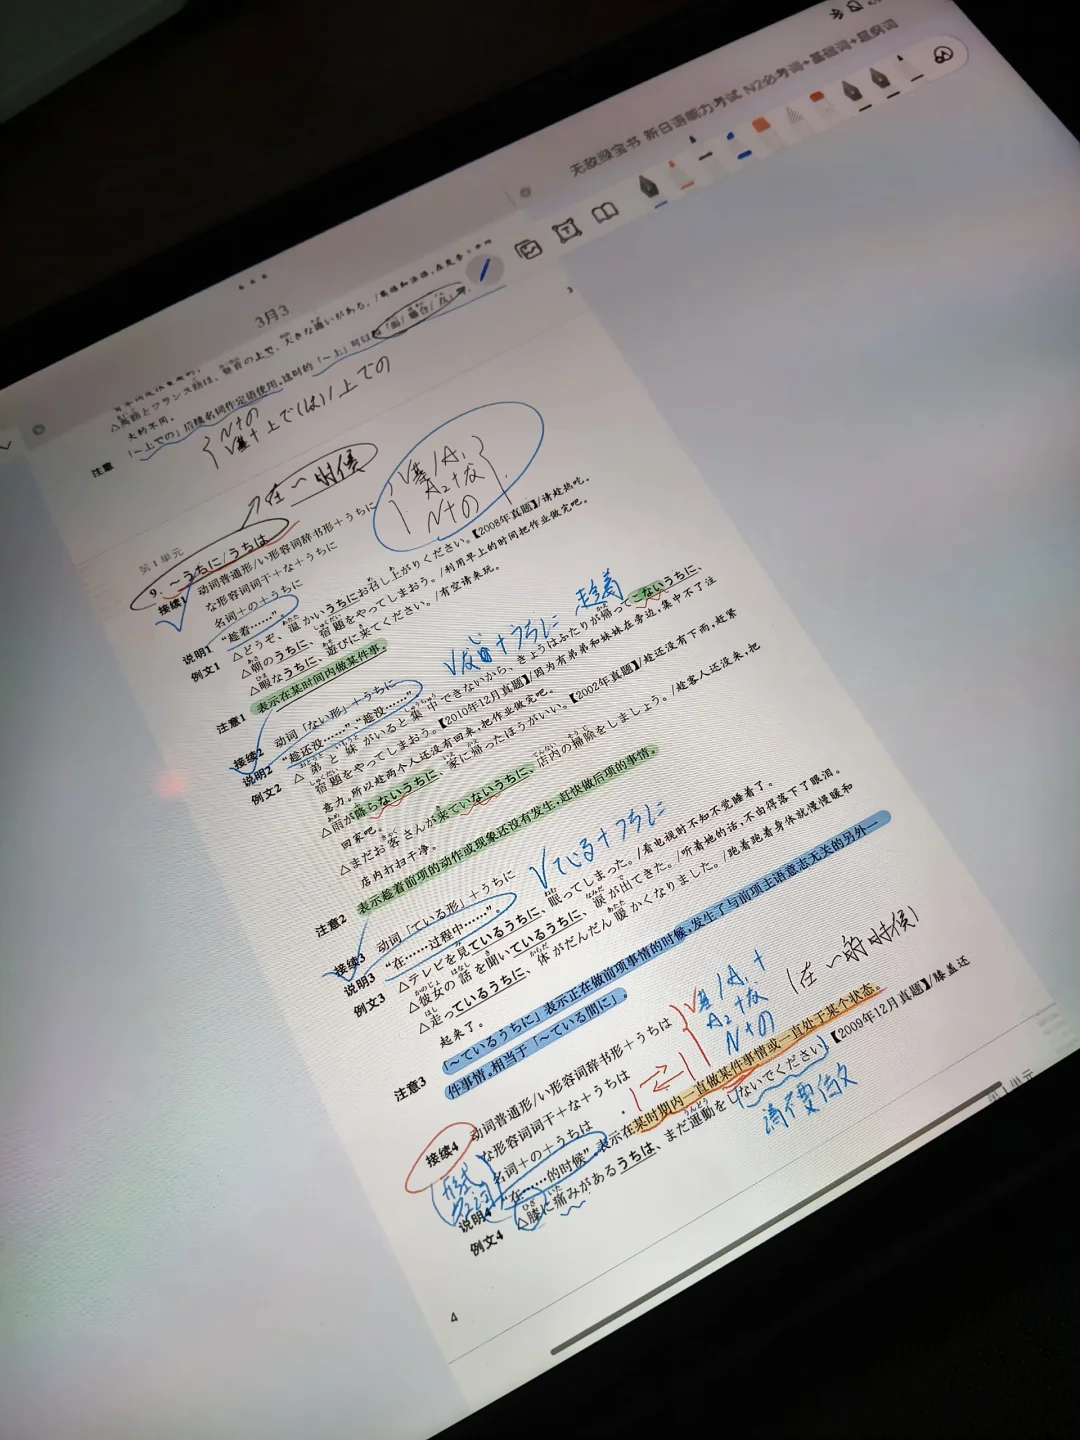 无敌绿宝书 新日语能力考试 N2必考词+基础词+超纲词
3月3
大きな違いがある。/英语和法语,在发音上有
△英語とフランス語は、発音の上で、
大的不同。
注意 「~上での」后续名词作定语使用。这时的「~上」可以
{ N+の
V基+ 上で(は)/上での
第1单元
→在~时候
9. ~うちに/うちは
V基/A₁
A₂+な
N+の
接续1 动词普通形/い形容词辞书形+うちに
な形容词词干+な+うちに
名词+の+うちに
说明1 “趁着……”
例文1 △どうぞ、温かいうちにお召し上がりください。【2008年真题】/请趁热吃。
△朝のうちに、宿題をやってしまおう。/利用早上的时间把作业做完吧。
△暇なうちに、遊びに来てください。/有空请来玩。
注意1 表示在某时间内做某件事。
V ない+うちに 趁着
接续2 动词「ない形」+うちに
说明2 “趁还没……”、“趁没……”
例文2 △弟と妹がいると集中できないから、きょうはふたりが帰ってこないうちに、
宿題をやってしまおう。【2010年12月真题】/因为有弟弟和妹妹在旁边,集中不了注
意力,所以趁两个人还没有回来,把作业做完吧。
△雨が降らないうちに、家に帰ったほうがいい。【2002年真题】/趁还没有下雨,赶紧
回家吧。
△まだお客さんが来ていないうちに、店内の掃除をしましょう。/趁客人还没来,把
店内打扫干净。
注意2 表示趁着前项的动作或现象还没有发生,赶快做后项的事情。
Vている+うちに
接续3 动词「ている形」+うちに
说明3 “在……过程中……”
例文3 △テレビを見ているうちに、眠ってしまった。/看电视时不知不觉睡着了。
△彼女の話を聞いているうちに、涙が出てきた。/听着她的话,不由得落下了眼泪。
△走っているうちに、体がだんだん暖かくなりました。/跑着跑着身体就慢慢暖和
起来了。
注意3 「~ているうちに」表示正在做前项事情的时候,发生了与前项主语意志无关的另外一
件事情。相当于「~ている間に」。
接续4 动词普通形/い形容词辞书形+うちは
な形容词词干+な+うちは
名词+の+うちは
V基/A₁+
A₂+な
N+の
(在~的时候)
形式
说明4 “在……的时候”,表示在某时期内一直做某件事情或一直处于某个状态。
例文4 △膝に痛みがあるうちは、まだ運動をしないでください。【2009年12月真题】/膝盖还
请不要做
4
单元